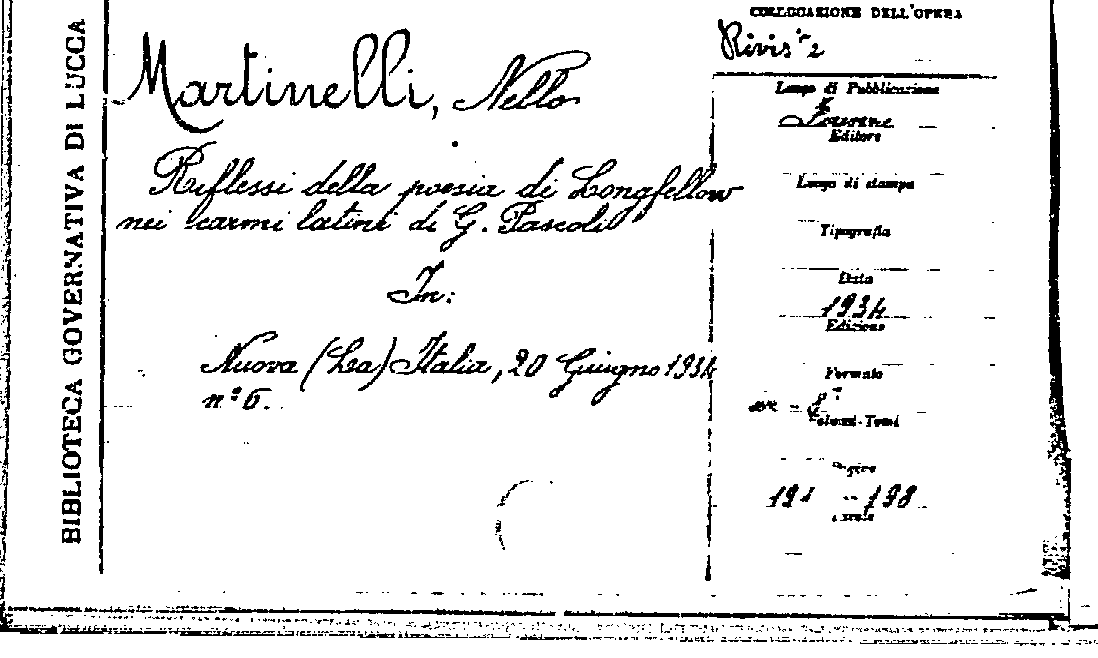 BIBLIOTECA GOVERNATIVA DI LUCCA
Martinelli, Nello
Riflessi della poesia di Longfellow
nei carmi latini di G. Pascoli
In:
Nuova (La) Italia, 20 Giugno 1934
n° 6.
COLLOCAZIONE DELL'OPERA
Luogo di Pubblicazione
Editore
Luogo di stampa
Tipografia
Data
1934
Edizione
Formato
in - 8°
Volumi-Tomi
Pagine
- 198